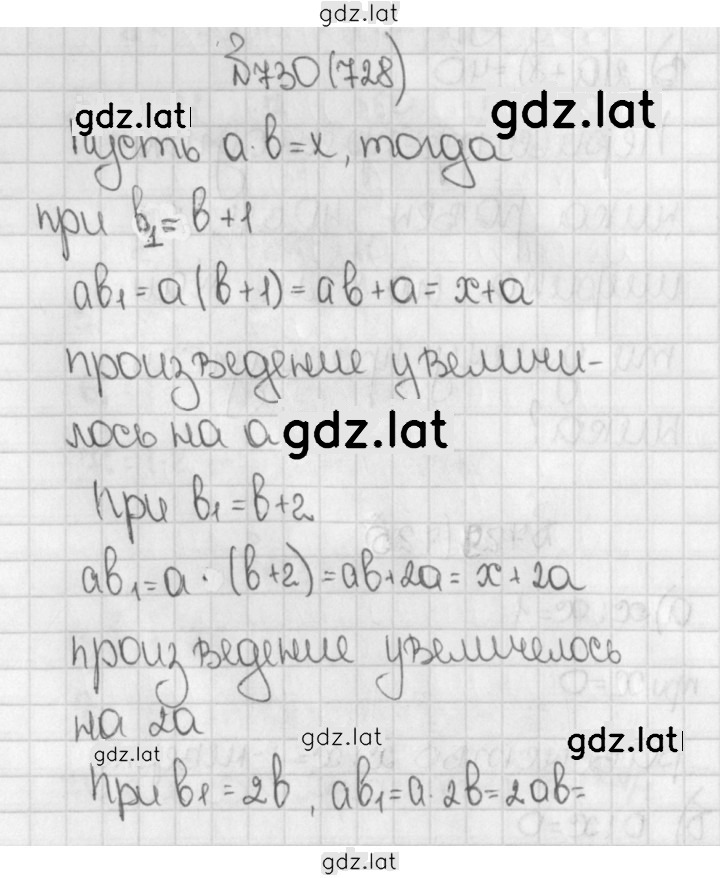 gdz.lat
№730(728)
gdz.lat gdz.lat
Пусть a·b=x, тогда
при b₁=b+1
ab₁=a(b+1)=ab+a=x+a
произведение увеличи-
лось на a gdz.lat
при b₁=b+2
ab₁=a·(b+2)=ab+2a=x+2a
произведение увеличелось
на 2a
gdz.lat gdz.lat gdz.lat
при b₁=2b, ab₁=a·2b=2ab=
gdz.lat